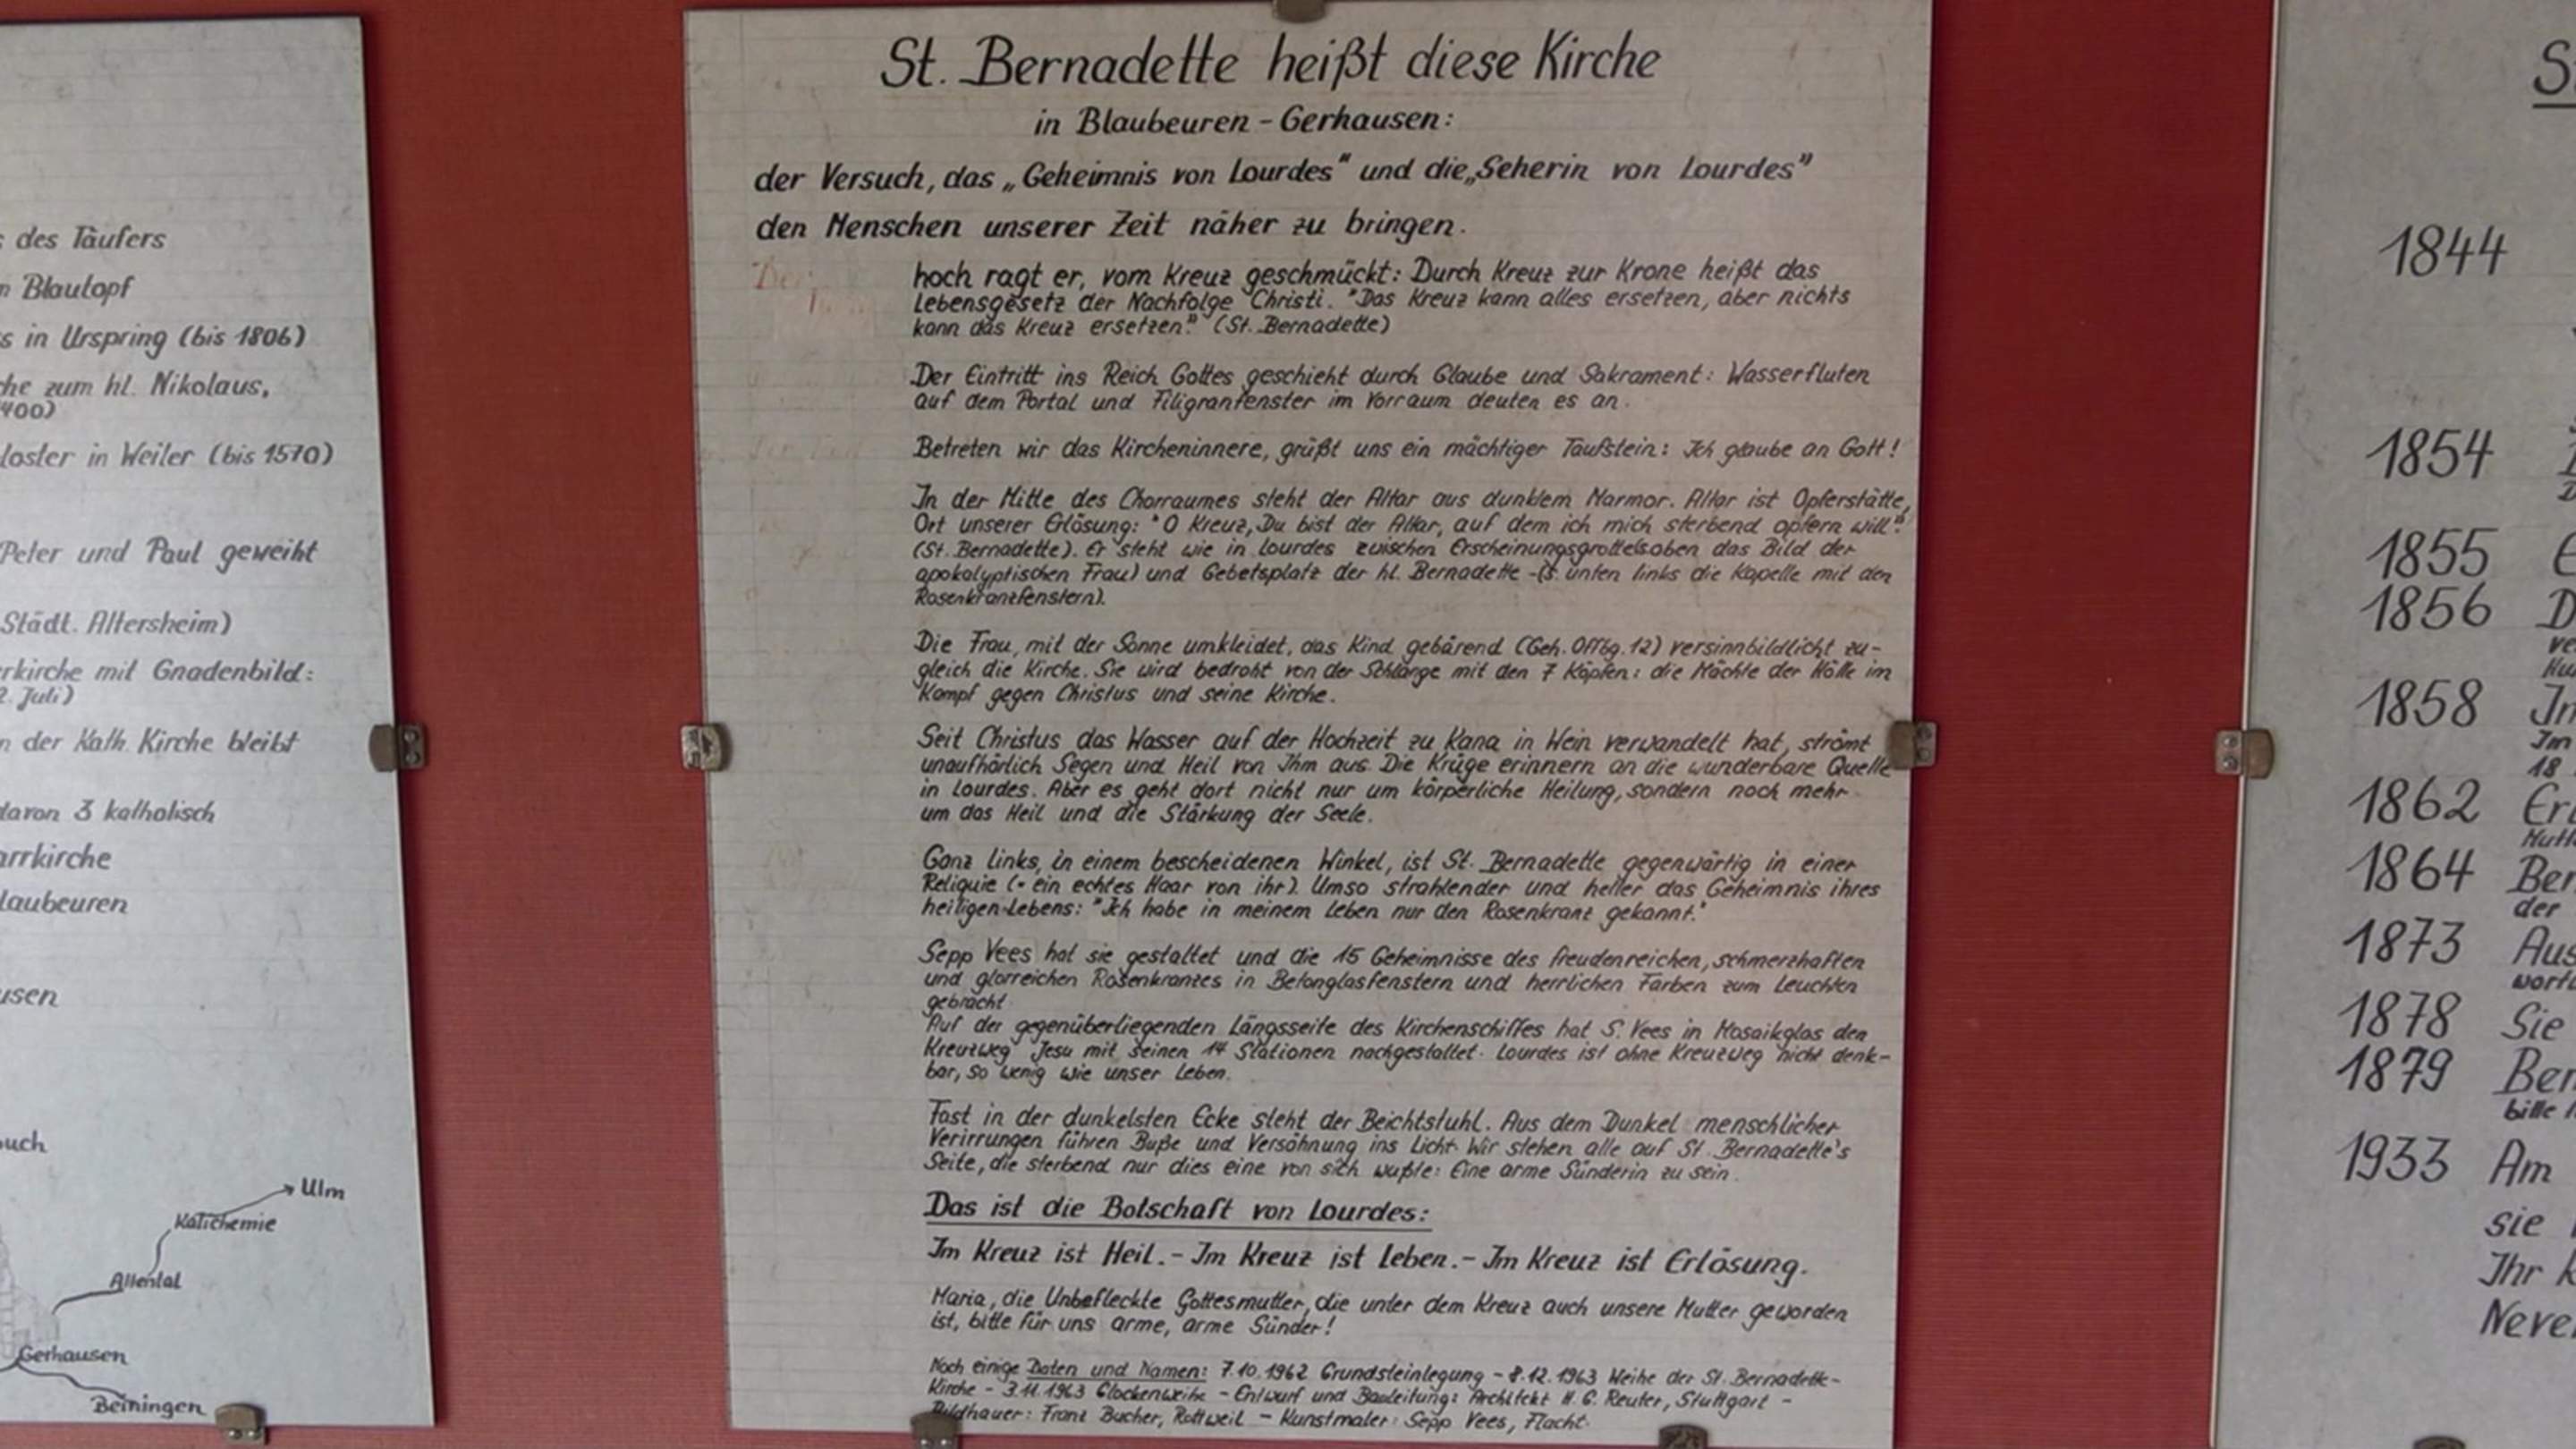 s des Täufers
m Blautopf
s in Urspring (bis 1806)
che zum hl. Nikolaus,
400)
loster in Weiler (bis 1570)
Peter und Paul geweiht
Städt. Altersheim)
rkirche mit Gnadenbild:
2. Juli)
n der Kath. Kirche bleibt
davon 3 katholisch
arrkirche
laubeuren
usen
buch
Ulm
Kalichemie
Altental
Gerhausen
Beiningen
St. Bernadette heißt diese Kirche
in Blaubeuren - Gerhausen:
der Versuch, das „Geheimnis von Lourdes" und die „Seherin von Lourdes"
den Menschen unserer Zeit näher zu bringen.
Der
hoch ragt er, vom Kreuz geschmückt: Durch Kreuz zur Krone heißt das
Lebensgesetz der Nachfolge Christi. "Das Kreuz kann alles ersetzen, aber nichts
kann das Kreuz ersetzen." (St. Bernadette)
Der Eintritt ins Reich Gottes geschieht durch Glaube und Sakrament: Wasserfluten
auf dem Portal und Filigranfenster im Vorraum deuten es an.
Betreten wir das Kircheninnere, grüßt uns ein mächtiger Taufstein: Ich glaube an Gott!
In der Mitte des Chorraumes steht der Altar aus dunklem Marmor. Altar ist Opferstätte,
Ort unserer Erlösung: "O Kreuz, Du bist der Altar, auf dem ich mich sterbend opfern will."
(St. Bernadette). Er steht wie in Lourdes zwischen Erscheinungsgrotte (s. oben das Bild der
apokalyptischen Frau) und Gebetsplatz der hl. Bernadette - (s. unten links die Kapelle mit den
Rosenkranzfenstern).
Die Frau, mit der Sonne umkleidet, das Kind gebärend (Geh. Offbg. 12) versinnbildlicht zu-
gleich die Kirche. Sie wird bedroht von der Schlange mit den 7 Köpfen: die Mächte der Hölle im
Kampf gegen Christus und seine Kirche.
Seit Christus das Wasser auf der Hochzeit zu Kana in Wein verwandelt hat, strömt
unaufhörlich Segen und Heil von Ihm aus. Die Krüge erinnern an die wunderbare Quelle
in Lourdes. Aber es geht dort nicht nur um körperliche Heilung, sondern noch mehr
um das Heil und die Stärkung der Seele.
Ganz links, in einem bescheidenen Winkel, ist St. Bernadette gegenwärtig in einer
Reliquie (- ein echtes Haar von ihr). Umso strahlender und heller das Geheimnis ihres
heiligen Lebens: "Ich habe in meinem Leben nur den Rosenkranz gekannt."
Sepp Vees hat sie gestaltet und die 15 Geheimnisse des freudenreichen, schmerzhaften
und glorreichen Rosenkranzes in Betonglasfenstern und herrlichen Farben zum Leuchten
gebracht.
Auf der gegenüberliegenden Längsseite des Kirchenschiffes hat S. Vees in Mosaikglas den
Kreuzweg Jesu mit seinen 14 Stationen nachgestaltet. Lourdes ist ohne Kreuzweg nicht denk-
bar, so wenig wie unser Leben.
Fast in der dunkelsten Ecke steht der Beichtstuhl. Aus dem Dunkel menschlicher
Verirrungen führen Buße und Versöhnung ins Licht. Wir stehen alle auf St. Bernadette's
Seite, die sterbend nur dies eine von sich wußte: Eine arme Sünderin zu sein.
Das ist die Botschaft von Lourdes:
Im Kreuz ist Heil. - Im Kreuz ist Leben. - Im Kreuz ist Erlösung.
Maria, die Unbefleckte Gottesmutter, die unter dem Kreuz auch unsere Mutter geworden
ist, bitte für uns arme, arme Sünder!
Noch einige Daten und Namen: 7.10.1962 Grundsteinlegung - 8.12.1963 Weihe der St. Bernadette-
Kirche - 3.11.1963 Glockenweihe - Entwurf und Bauleitung: Architekt H. G. Reuter, Stuttgart -
Bildhauer: Franz Bucher, Rottweil - Kunstmaler: Sepp Vees, Flacht.
1844
1854
1855
1856
1858
Im
18
1862
1864 Ber
der
1873 Aus
1878 Sie
1879 Ber
bitte
1933 Am
sie
Ihr
Never